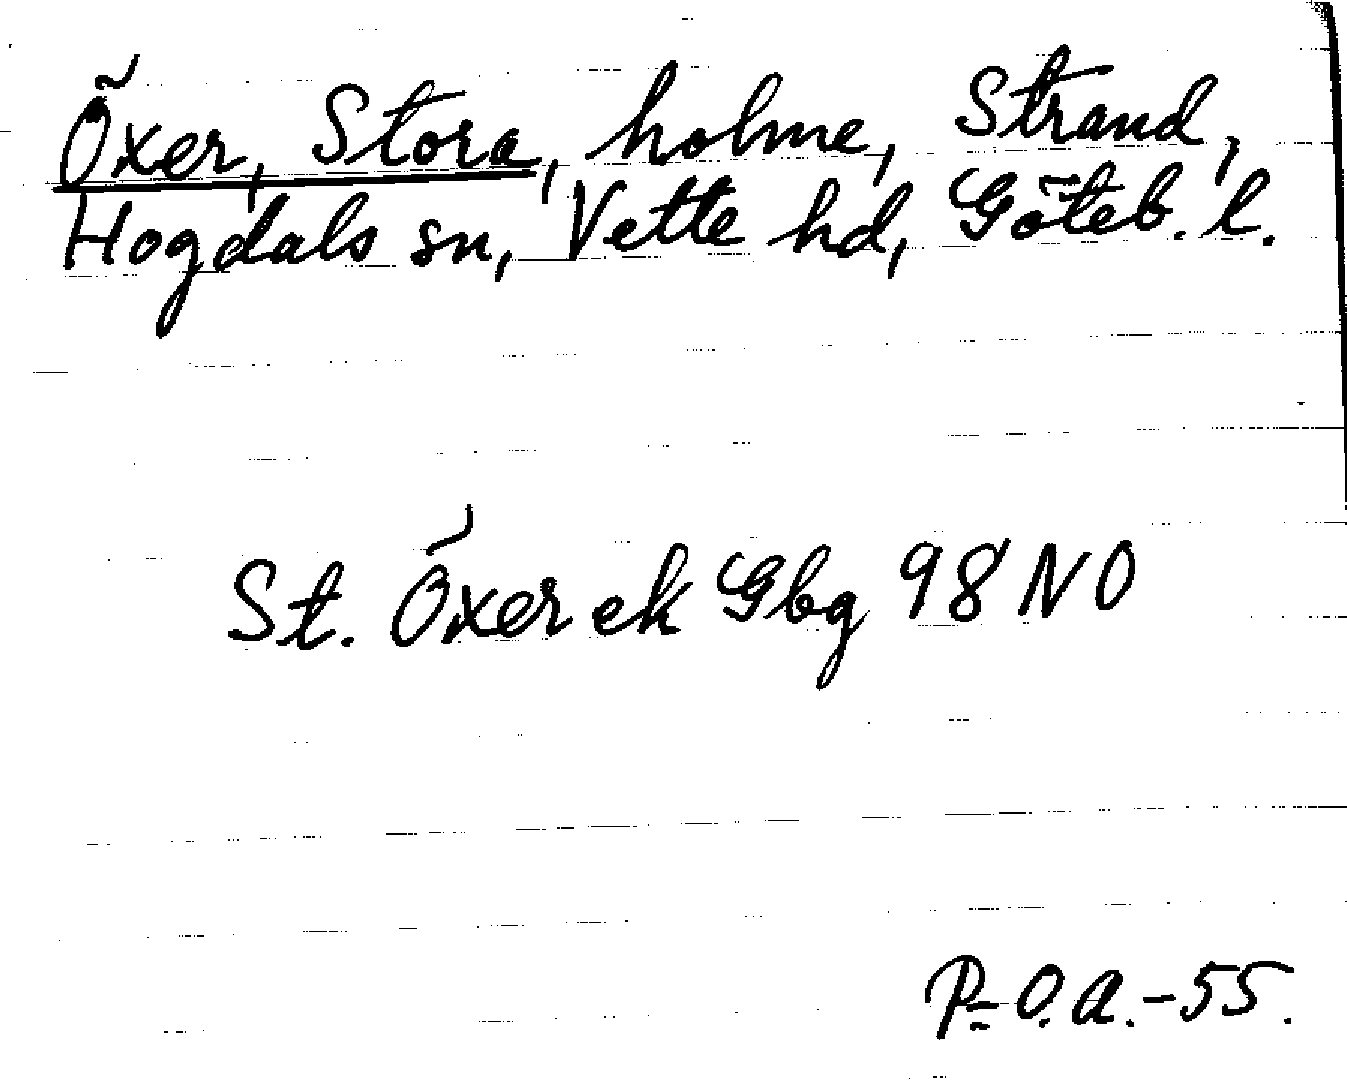 Öxer, Stora, holme, Strand,
Hogdals sn, Vette hd, Göteb. l.
St. Öxer ek Gbg 98 NO
P.-O.A.-55.